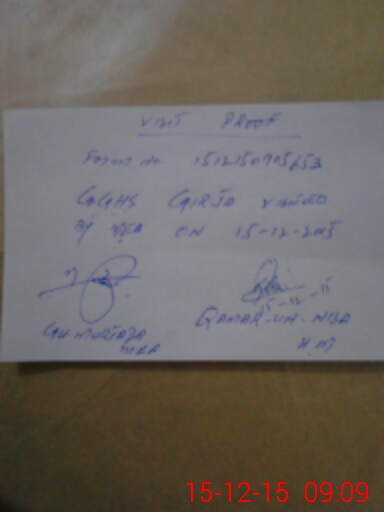 VISIT PROOF
Form No. 1512150905653
GGHS GIRJA VISITED
BY MEA ON 15-12-2015
15-12-15
GH. MURTAZA QAMAR-UN-NISA
MEA H.M
15-12-15 09:09